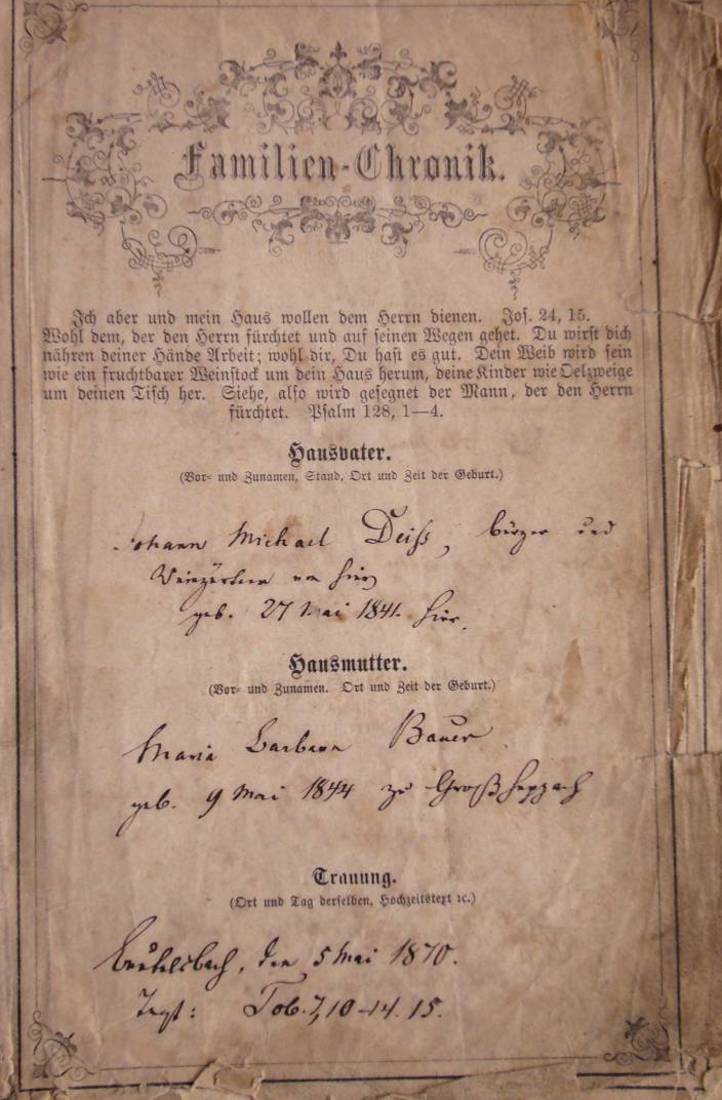 Familien-Chronik.
Ich aber und mein Haus wollen dem Herrn dienen. Jos. 24, 15.
Wohl dem, der den Herrn fürchtet und auf seinen Wegen gehet. Du wirst dich
nähren deiner Hände Arbeit; wohl dir, Du hast es gut. Dein Weib wird sein
wie ein fruchtbarer Weinstock um dein Haus herum, deine Kinder wie Oelzweige
um deinen Tisch her. Siehe, also wird gesegnet der Mann, der den Herrn
fürchtet. Psalm 128, 1—4.
Hausvater.
(Vor- und Zunamen, Stand, Ort und Zeit der Geburt.)
Johann Michael Deiß, Bürger und
Weingärtner von hier
geb. 27 Mai 1841. hier.
Hausmutter.
(Vor- und Zunamen. Ort und Zeit der Geburt.)
Maria Barbara Bauer
geb. 9 Mai 1844 zu Großheppach
Trauung.
(Ort und Tag derselben, Hochzeitstext ꝛc.)
den 5 Mai 1870.
Text: Tob. 7, 10-14. 15.